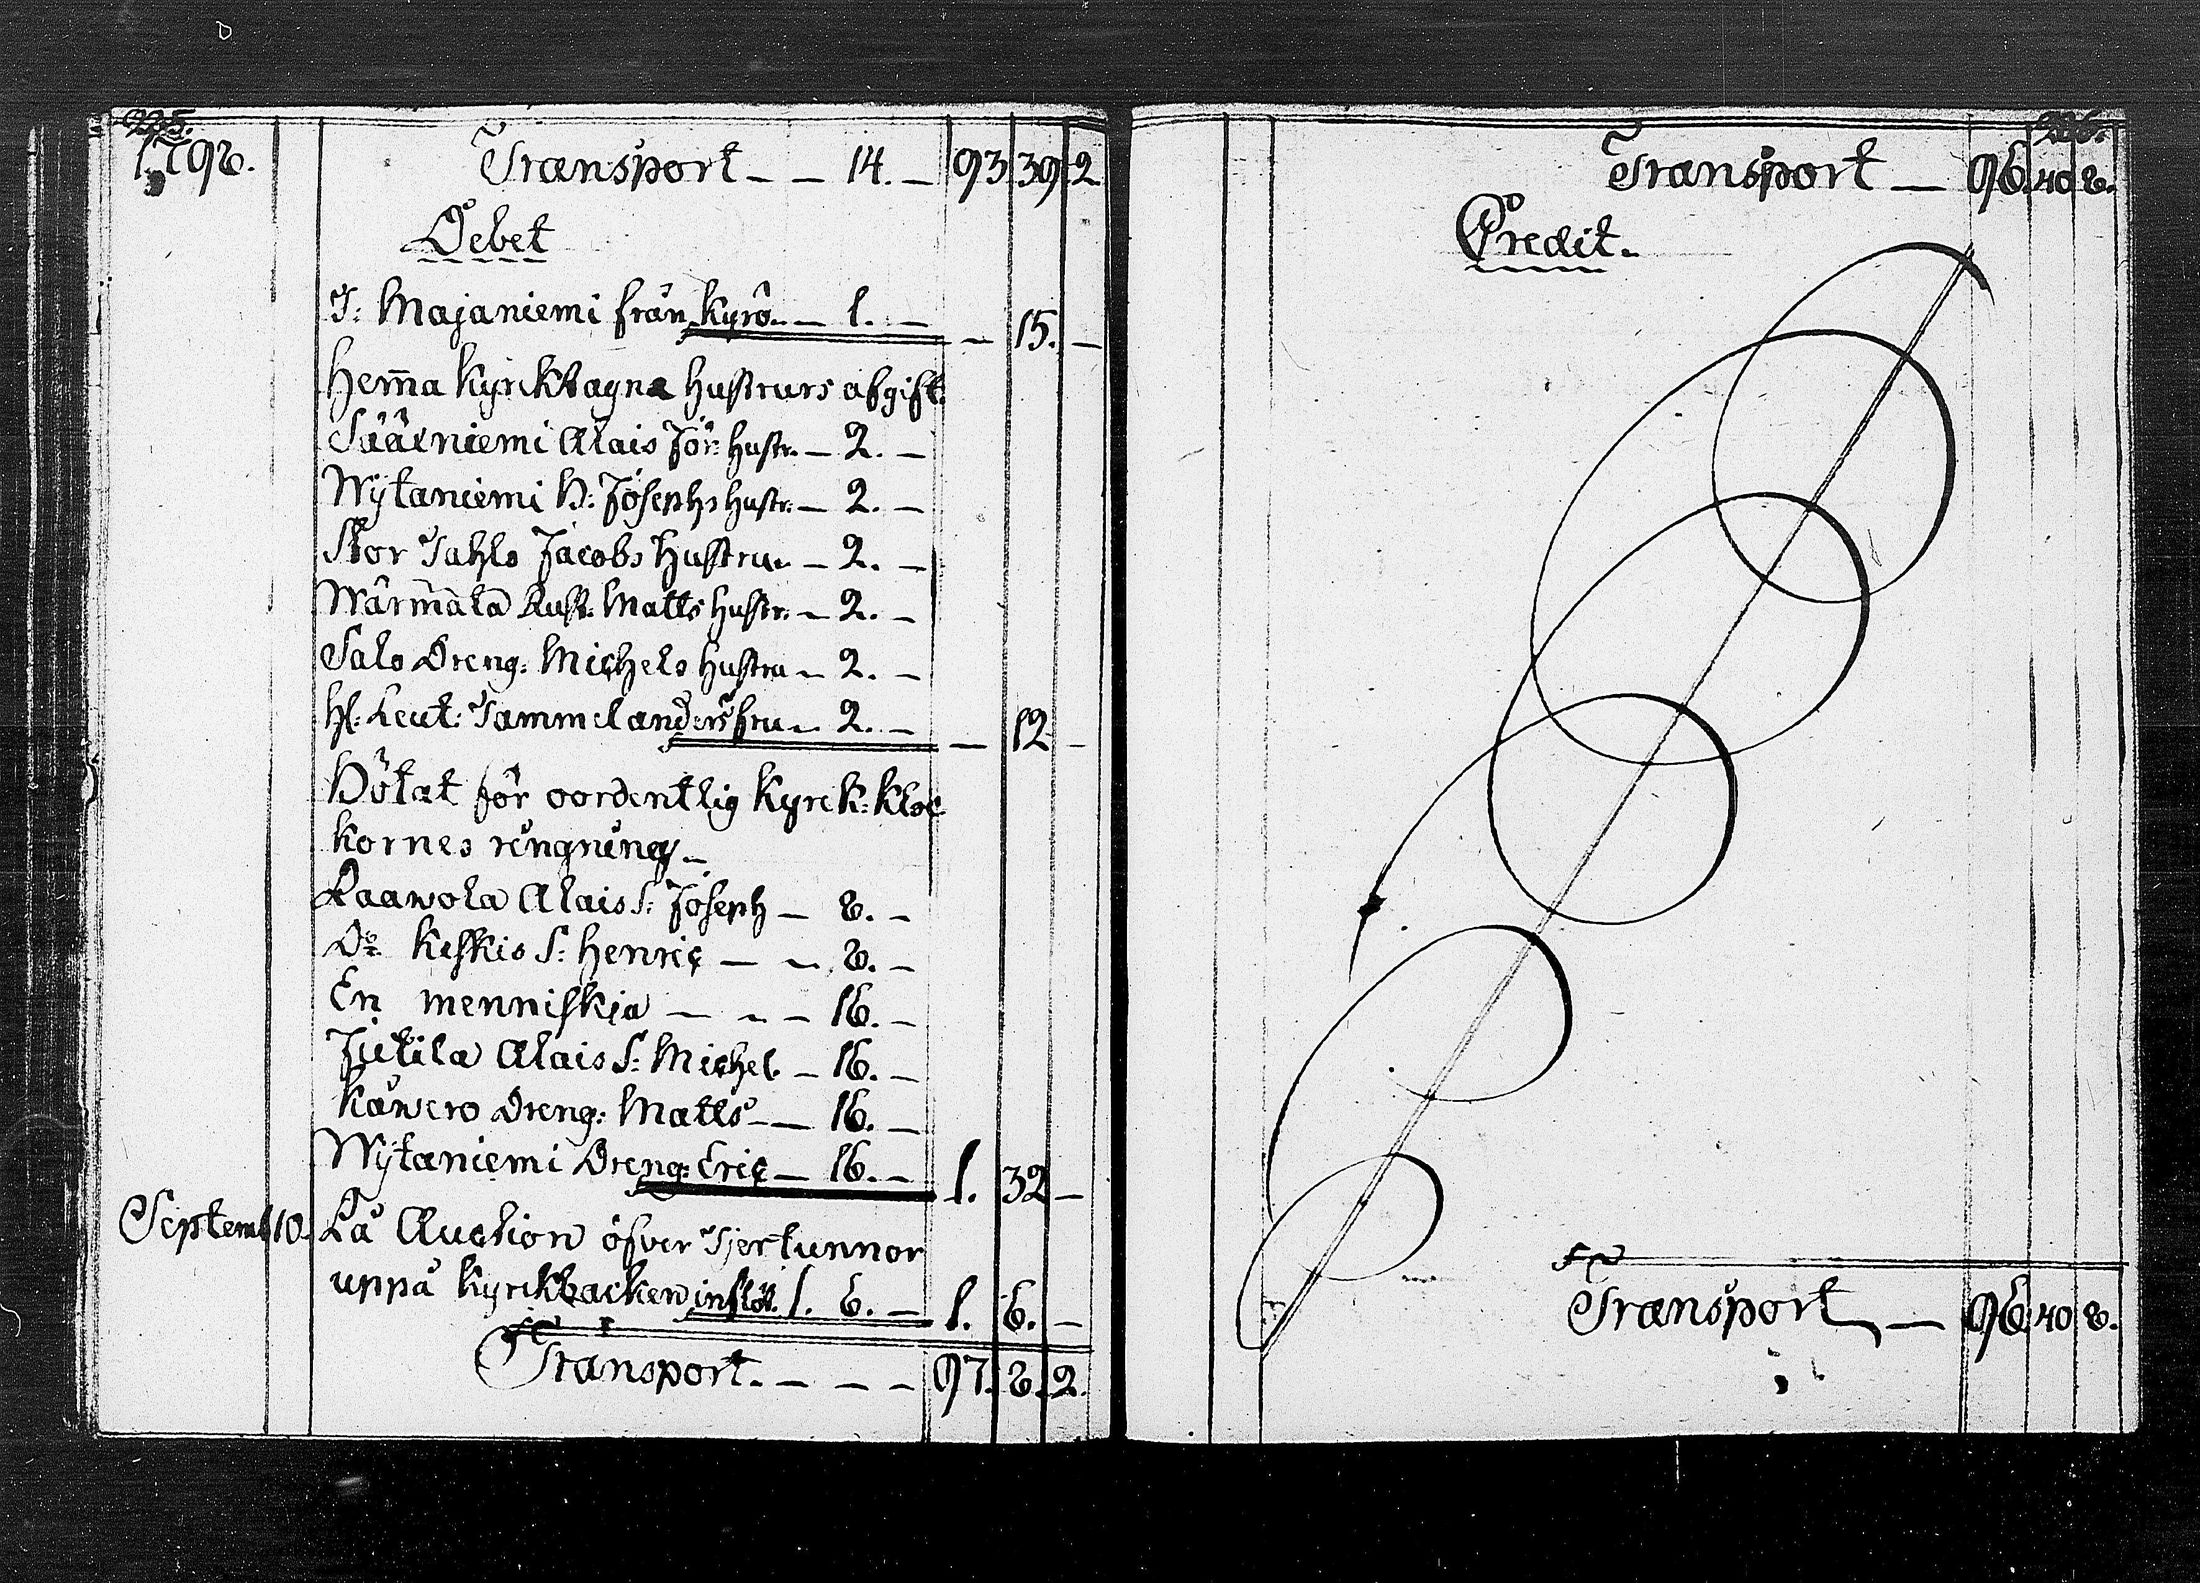 225.
1798.
Transport - - 14. - 93. 39. 2.
Debet
I: Majaniemi från Kyrö. - 1. - - 15. -
Hem̄a Kyrcktagna Hustrurs afgift.
Sääxniemi Alais Jör: Hustr. - 2. -
Wÿtaniemi B: Josephs Hustr. - 2. -
Stor Iahlo Jacobs Hustru - 2. -
Wärmälä Rust: Matts Hustr. - 2. -
Salo Dreng: Michels Hustru - 2. -
Hl: Leut: Tammelanders fru - 2. - - 12 -
Bötat för oordentlig Kyrck: Kloc
kornes ringning -
Laawola Alais S: Joseph - 8. -
Do Keskis S: Henric - - 8. -
En menniskia - - - 16. -
Jutila Alais S: Michel - 16. -
Käwero Dreng: Matts - - 16. -
Wÿtaniemi Dreng: Eric - 16. - 1. 32 -
Septemb 10. På Auction öfver Tjertunnor
uppå Kyrckbacken inflöt. 1. 6. - 1. 6. -
Transport. - - - 97. 8. 2.
226.
Transport - 96. 40. 8.
Credit.
Transport - 96. 40. 8.